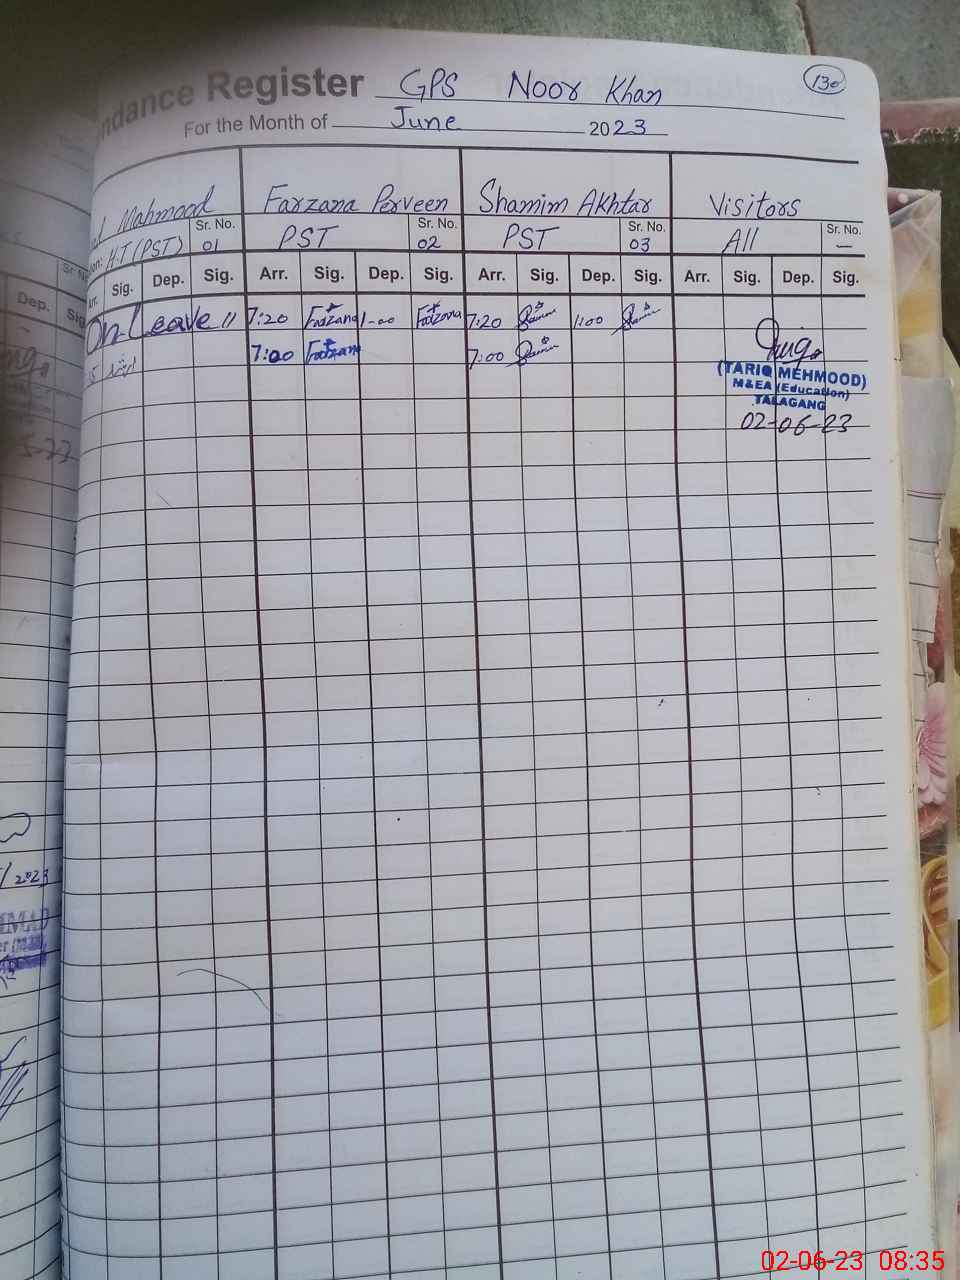 ndance Register GPS Noor Khan
130
For the Month of June 2023
Mahmood Farzana Perveen Shamim Akhtar Visitors
H.T (PST) Sr. No. 01 PST Sr. No. 02 PST Sr. No. 03 All Sr. No. —
Arr. Sig. Dep. Sig. Arr. Sig. Dep. Sig. Arr. Sig. Dep. Sig. Arr. Sig. Dep. Sig.
On Leave 7:20 Farzana 1-00 Farzana 7:20 1:00
7:00 Farzana 7:00
(TARIQ MEHMOOD)
M&EA (Education)
TALAGANG
02-06-23
Dep.
/2023
02-06-23 08:35